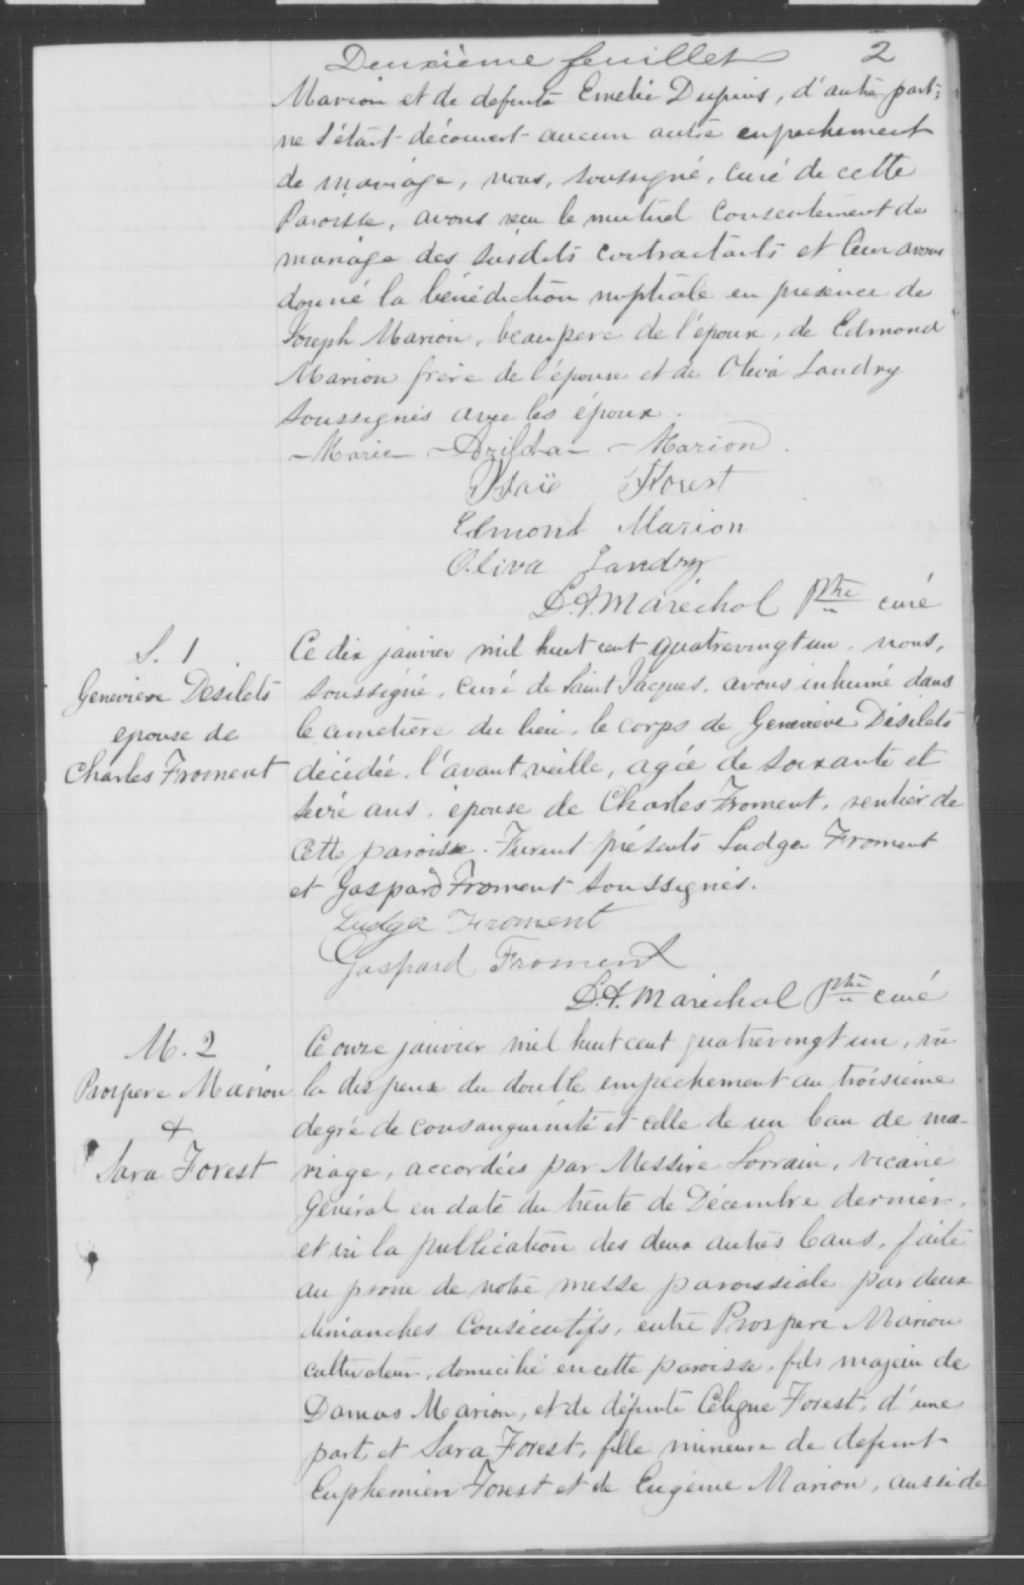 Deuxième feuillet 2
Marion et de defunte Emelie Dupuis, d'autre part;
ne s'étant découvert aucun autre enpechement
de mariage, nous, soussigné, curé de cette
Paroisse, avons reçu le mutuel consentement de
mariage des susdits contractants et leur avons
donné la bénédiction nuptiale en présence de
Joseph Marion, beaupere de l'époux, de Edmond
Marion frère de l'épouse et de Oliva Landry
soussignés avec les époux.
Marie Azilda Marion.
Isaïe Forest
Edmond Marion
Oliva Landry
L.A. Maréchal Ptre curé
S. 1
Genevieve Desilets
epouse de
Charles Froment
Ce dix janvier mil huit cent quatrevingt un, nous,
soussigné, curé de Saint Jacques, avons inhumé dans
le cimetière du lieu, le corps de Geneviève Désilets
décédée, l'avant veille, agée de soixante et
seize ans, épouse de Charles Froment, rentier de
cette paroisse. Furent présents Ludger Froment
et Gaspard Froment soussignés.
Ludger Froment
Gaspard Froment
L.A. Maréchal Ptre curé
M. 2
Prospere Marion
&
Sara Forest
Ce onze janvier mil huit cent quatrevingt un, vu
la dispense du double empechement au troisieme
degré de consanguinité et celle de un ban de ma-
riage, accordées par Messire Lorrain, vicaire
Général en date du trente de Décembre dernier,
et vu la publication des deux autres bans, faite
au prone de notre messe paroissiale par deux
dimanches consécutifs, entre Prospere Marion
cultivateur, domicilié en cette paroisse, fils majeur de
Damas Marion, et de défunte Céligne Forest, d'une
part, et Sara Forest, fille mineure de defunt
Euphemien Forest et de Eugénie Marion, aussi de